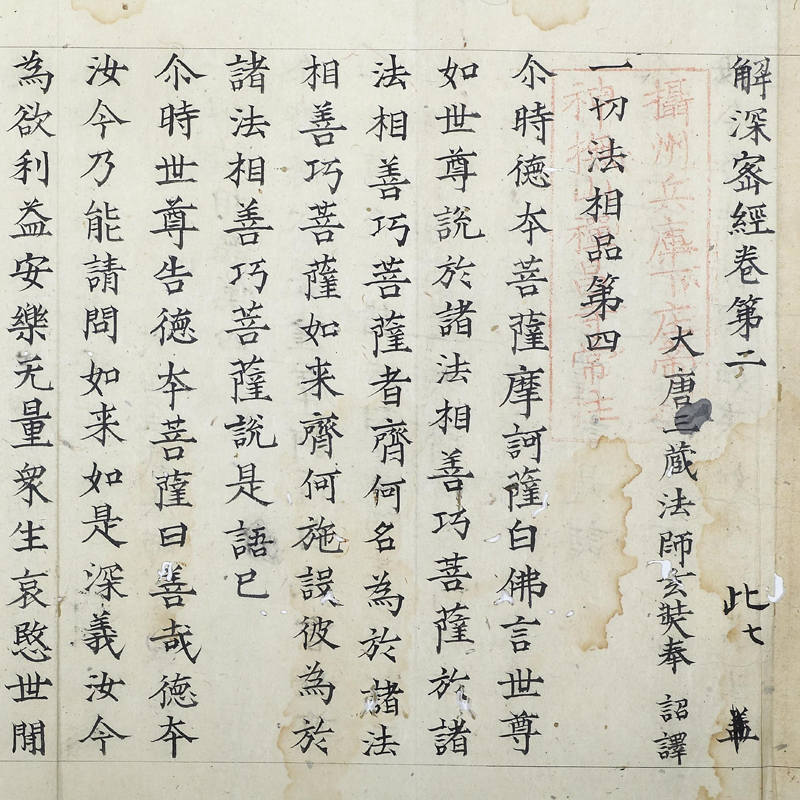 解深密經卷第二 此七
大唐三蔵法師玄奘奉 詔譯
一切法相品第四
尒時德夲菩薩摩訶薩白佛言世尊
如世尊說於諸法相善巧菩薩於諸
法相善巧菩薩者齊何名為於諸法
相善巧菩薩如来齊何施設彼為於
諸法相善巧菩薩說是語已
尒時世尊告德夲菩薩曰善哉德夲
汝今乃能請問如来如是深義汝今
為欲利益安樂无量衆生哀愍世間
攝州兵庫下庄